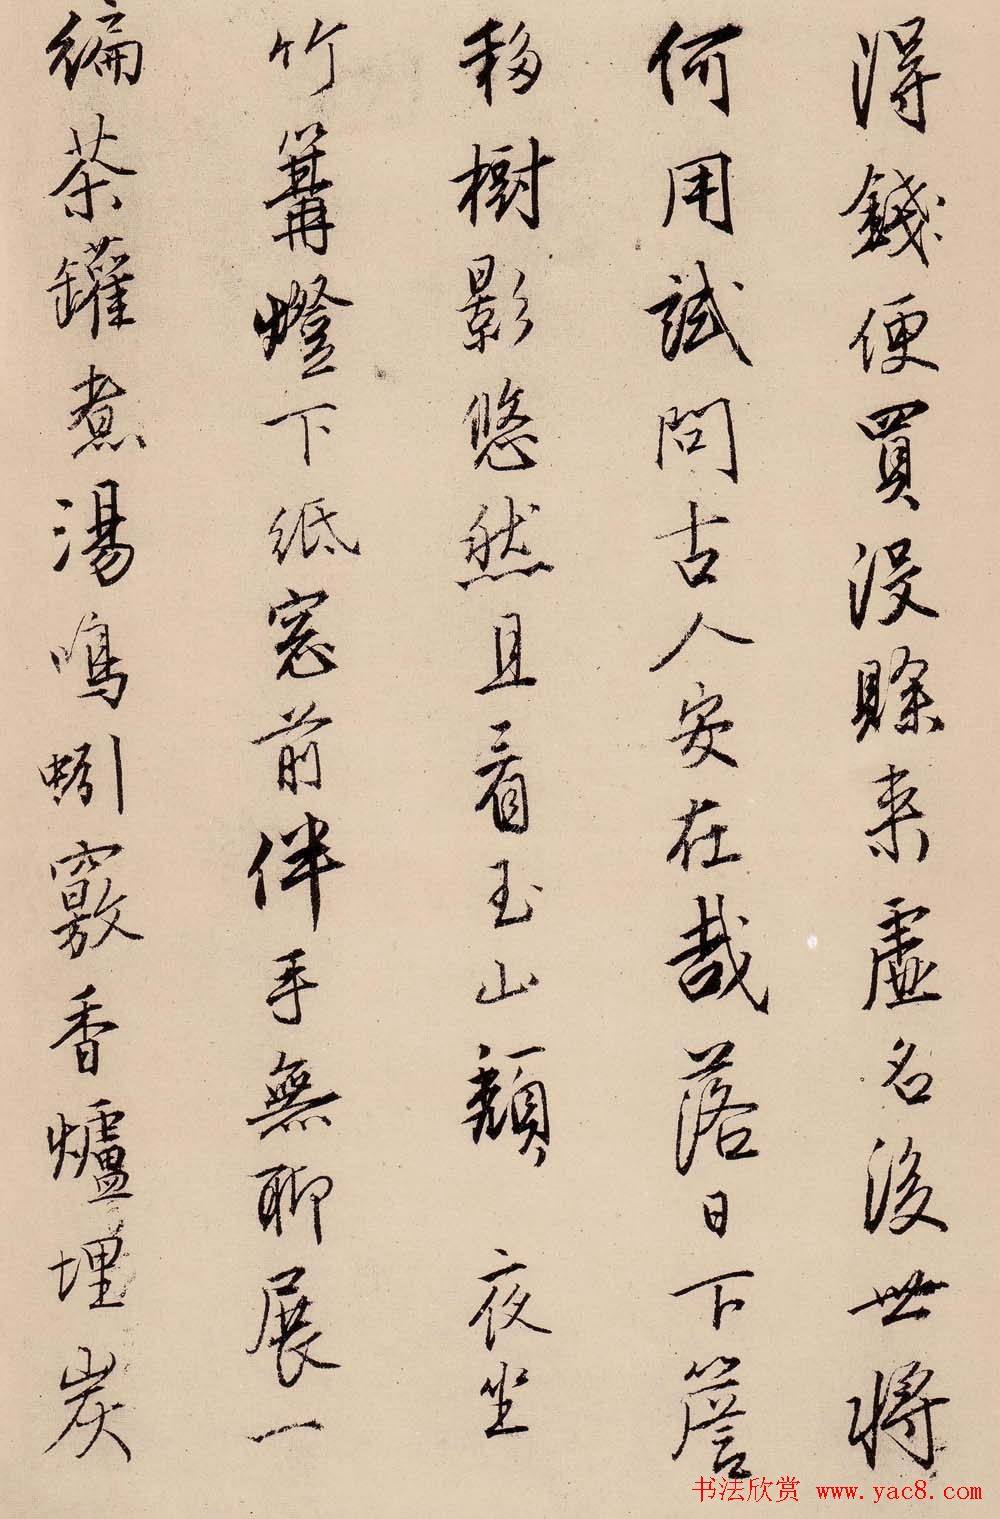 得錢便買没賖来虛名後世將
何用試問古人安在哉落日下簷
移樹影悠然且看玉山頹 夜坐
竹篝燈下紙窓前伴手無聊展一
編茶罐煮湯鳴蚓竅香爐埋炭
书法欣赏 www.yac8.com